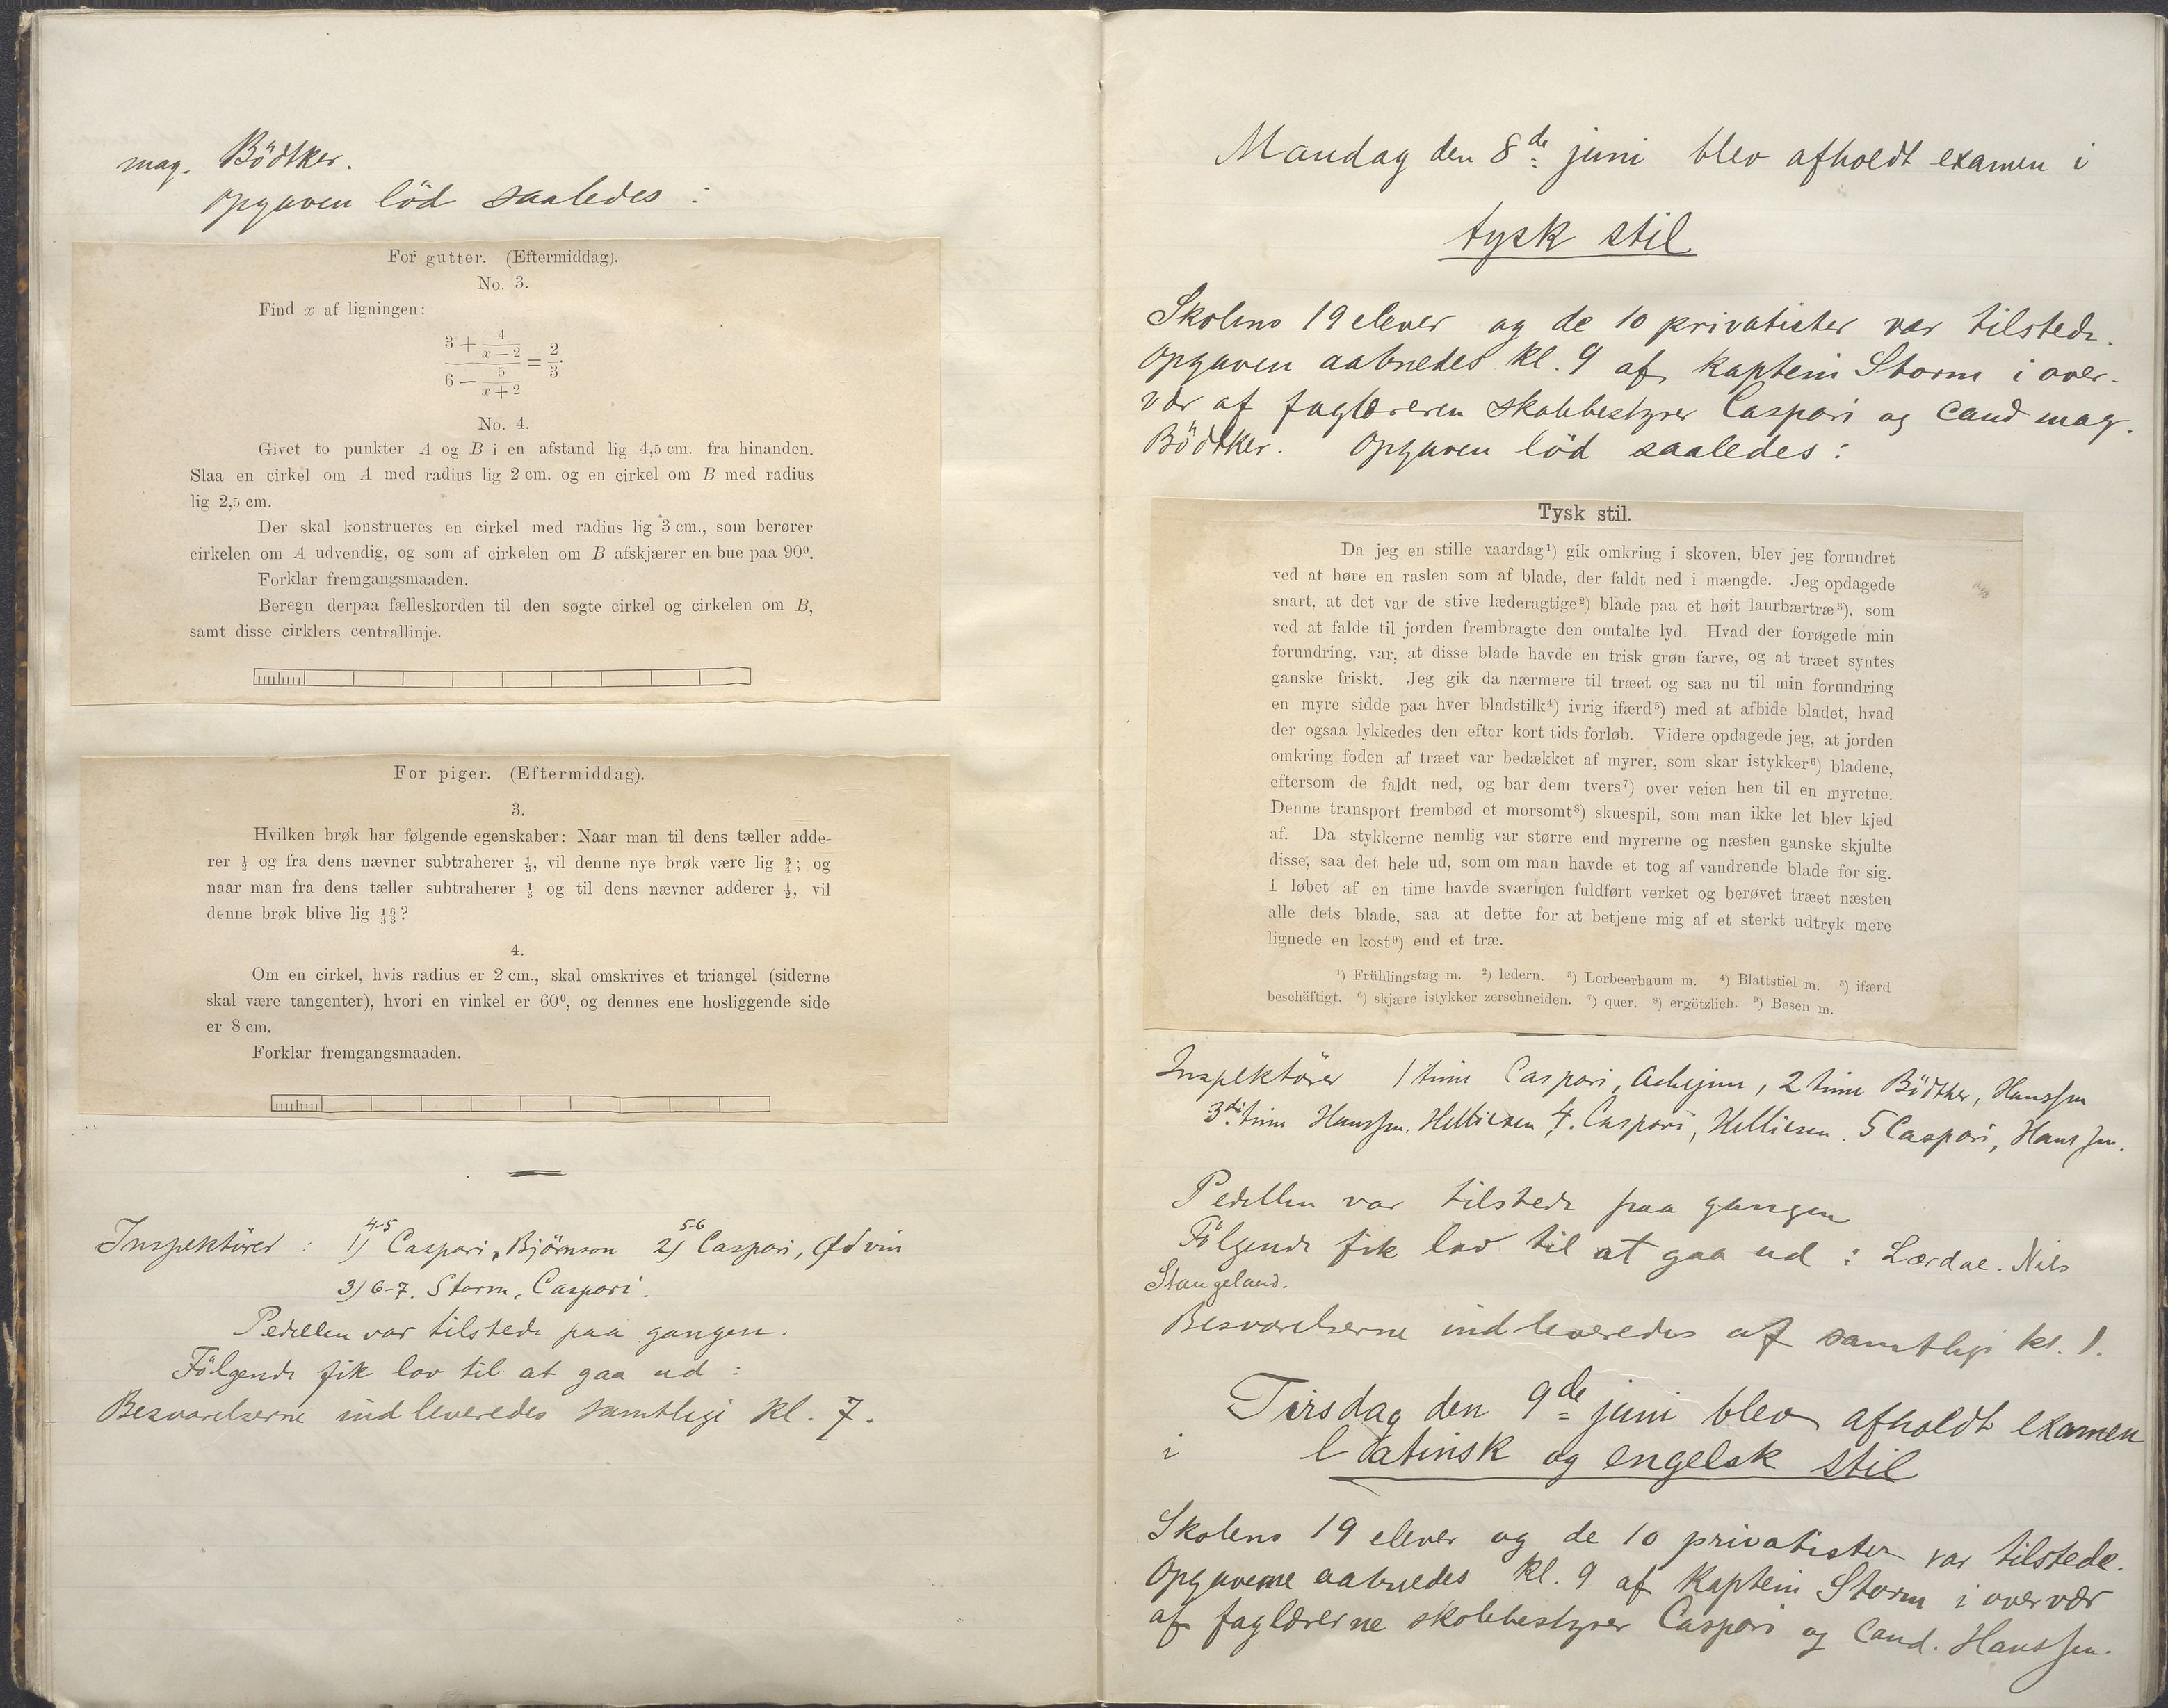 mag. Bödtker.
Opgaven löd saaledes :
For gutter. (Eftermiddag).
No. 3.
Find x af ligningen:
3 + 4/(x — 2)
———————— = 2/3.
6 — 5/(x + 2)
No. 4.
Givet to punkter A og B i en afstand lig 4,5 cm. fra hinanden.
Slaa en cirkel om A med radius lig 2 cm. og en cirkel om B med radius
lig 2,5 cm.
Der skal konstrueres en cirkel med radius lig 3 cm., som berører
cirkelen om A udvendig, og som af cirkelen om B afskjærer en bue paa 90⁰.
Forklar fremgangsmaaden.
Beregn derpaa fælleskorden til den søgte cirkel og cirkelen om B,
samt disse cirklers centrallinje.
For piger. (Eftermiddag).
3.
Hvilken brøk har følgende egenskaber: Naar man til dens tæller adde-
rer ½ og fra dens nævner subtraherer ⅓, vil denne nye brøk være lig ¾; og
naar man fra dens tæller subtraherer ⅓ og til dens nævner adderer ½, vil
denne brøk blive lig 16/33?
4.
Om en cirkel, hvis radius er 2 cm., skal omskrives et triangel (siderne
skal være tangenter), hvori en vinkel er 60⁰, og dennes ene hosliggende side
er 8 cm.
Forklar fremgangsmaaden.
Inspektörer : 1) 4-5 Caspari, Björnson 2) 5-6 Caspari, Ødvin
3) 6-7. Storm, Caspari.
Pedellen var tilstede paa gangen.
Fölgende fik lov til at gaa ud :
Besvarelserne indleveredes samtlige kl. 7.
Mandag den 8de juni blev afholdt examen i
tysk stil
Skolens 19 elever og de 10 privatister var tilstede.
Opgaven aabnedes kl. 9 af kaptein Storm i over-
vær af faglæreren skolebestyrer Caspari og Cand mag.
Bödtker. Opgaven löd saaledes :
Tysk stil.
Da jeg en stille vaardag¹) gik omkring i skoven, blev jeg forundret
ved at høre en raslen som af blade, der faldt ned i mængde. Jeg opdagede
snart, at det var de stive læderagtige²) blade paa et høit laurbærtræ³), som
ved at falde til jorden frembragte den omtalte lyd. Hvad der forøgede min
forundring, var, at disse blade havde en frisk grøn farve, og at træet syntes
ganske friskt. Jeg gik da nærmere til træet og saa nu til min forundring
en myre sidde paa hver bladstilk⁴) ivrig ifærd⁵) med at afbide bladet, hvad
der ogsaa lykkedes den efter kort tids forløb. Videre opdagede jeg, at jorden
omkring foden af træet var bedækket af myrer, som skar istykker⁶) bladene,
eftersom de faldt ned, og bar dem tvers⁷) over veien hen til en myretue.
Denne transport frembød et morsomt⁸) skuespil, som man ikke let blev kjed
af. Da stykkerne nemlig var større end myrerne og næsten ganske skjulte
disse, saa det hele ud, som om man havde et tog af vandrende blade for sig.
I løbet af en time havde sværmen fuldført verket og berøvet træet næsten
alle dets blade, saa at dette for at betjene mig af et sterkt udtryk mere
lignede en kost⁹) end et træ.
¹) Frühlingstag m. ²) ledern. ³) Lorbeerbaum m. ⁴) Blattstiel m. ⁵) ifærd
beschäftigt. ⁶) skjære istykker zerschneiden. ⁷) quer. ⁸) ergötzlich. ⁹) Besen m.
Inspektörer 1 time Caspari, 2 time Bödtker, Hanssen
3die time Hanssen, Helliesen 4. Caspari, Helliesen. 5 Caspari, Hanssen.
Pedellen var tilstede paa gangen
Fölgende fik lov til at gaa ud : Lærdal. Nils
Stangeland.
Besvarelserne indleveredes af samtlige kl. 1.
Tirsdag den 9de juni blev afholdt examen
i latinsk og engelsk stil
Skolens 19 elever og de 10 privatister var tilstede.
Opgaverne aabnedes kl. 9 af Kaptein Storm i overvær
af faglærerne skolebestyrer Caspari og Cand. Hanssen.